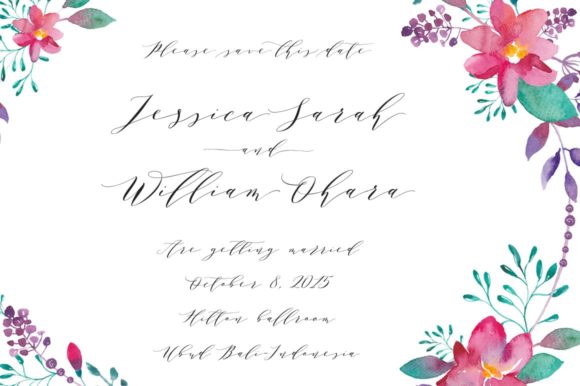 Please save this date
Jessica Sarah
and
William Ohara
Are getting married
October 8, 2025
Hilton ballroom
Ubud Bali-Indonesia